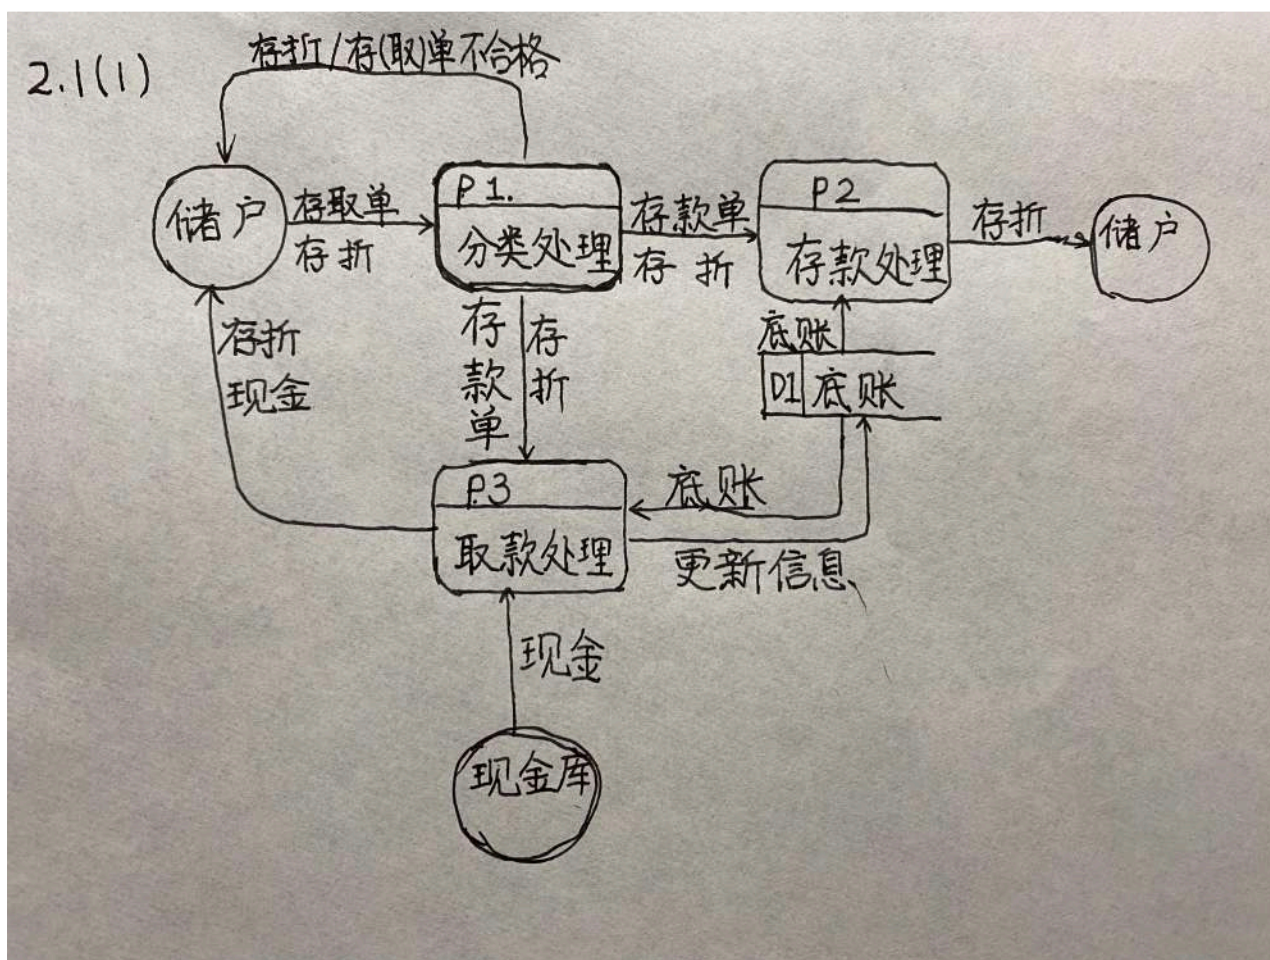 2.1(1)
存折/存(取)单不合格
储户
存取单
存折
P1.
分类处理
存款单
存折
P2
存款处理
存折
储户
存折
现金
存款单
存折
底账
D1 底账
P.3
取款处理
底账
更新信息
现金
现金库